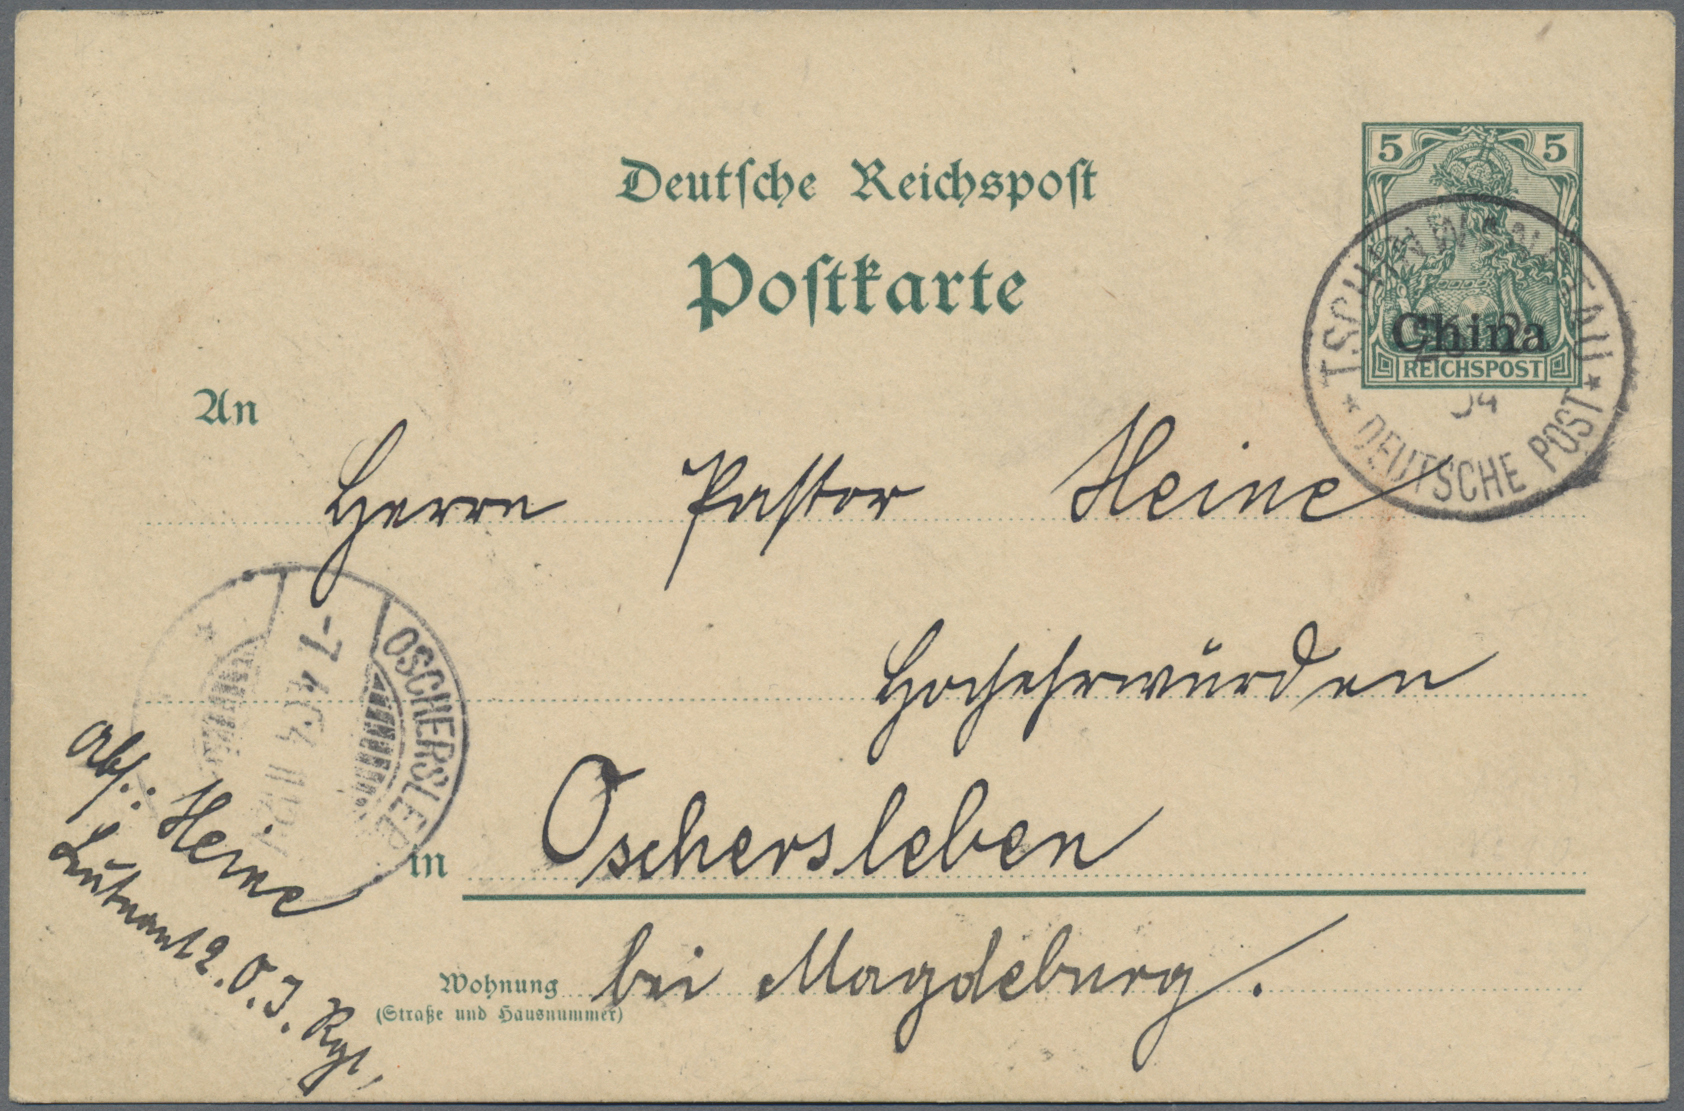 Deutsche Reichspost
Postkarte
5 5
China
REICHSPOST
04
* DEUTSCHE POST *
An
Herrn Pastor Heine
Hochehrwürden
in Oschersleben
bei Magdeburg.
Wohnung
(Straße und Hausnummer)
OSCHERSLEB
-7 4 04
Abs.: Heine
Leutnant 2. O. J. Rgt.